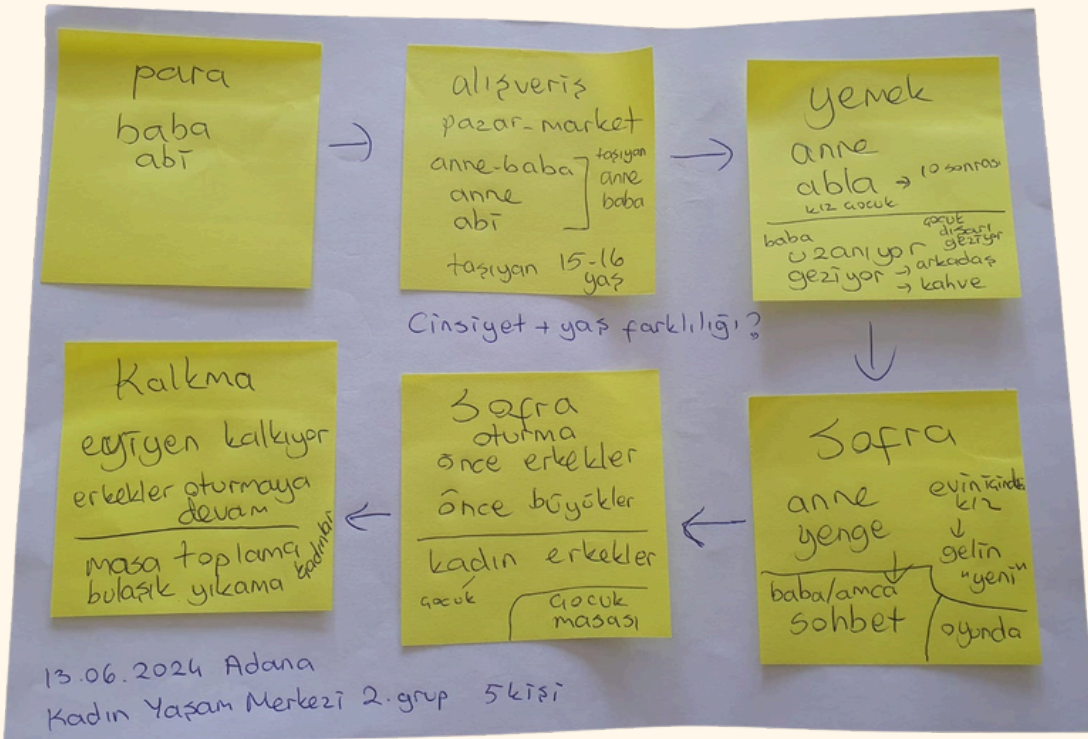 para
baba
abi
→
alışveriş
pazar-market
anne-baba
anne
abi
taşıyan
anne
baba
taşıyan 15-16
yaş
→
yemek
anne
abla → 10 sonrası
kız çocuk
baba
uzanıyor
geziyor → arkadaş
→ kahve
çocuk
dışarı
geziyor
Cinsiyet + yaş farklılığı?
↓
Sofra
anne
yenge
evin içinde
kız
↓
gelin
"yeni"
baba/amca
sohbet
oyunda
←
Sofra
oturma
önce erkekler
önce büyükler
kadın erkekler
çocuk
çocuk
masası
←
Kalkma
eyiyen kalkıyor
erkekler oturmaya
devam
masa toplama
bulaşık yıkama
kadınlar
13.06.2024 Adana
Kadın Yaşam Merkezi 2.grup 5 kişi